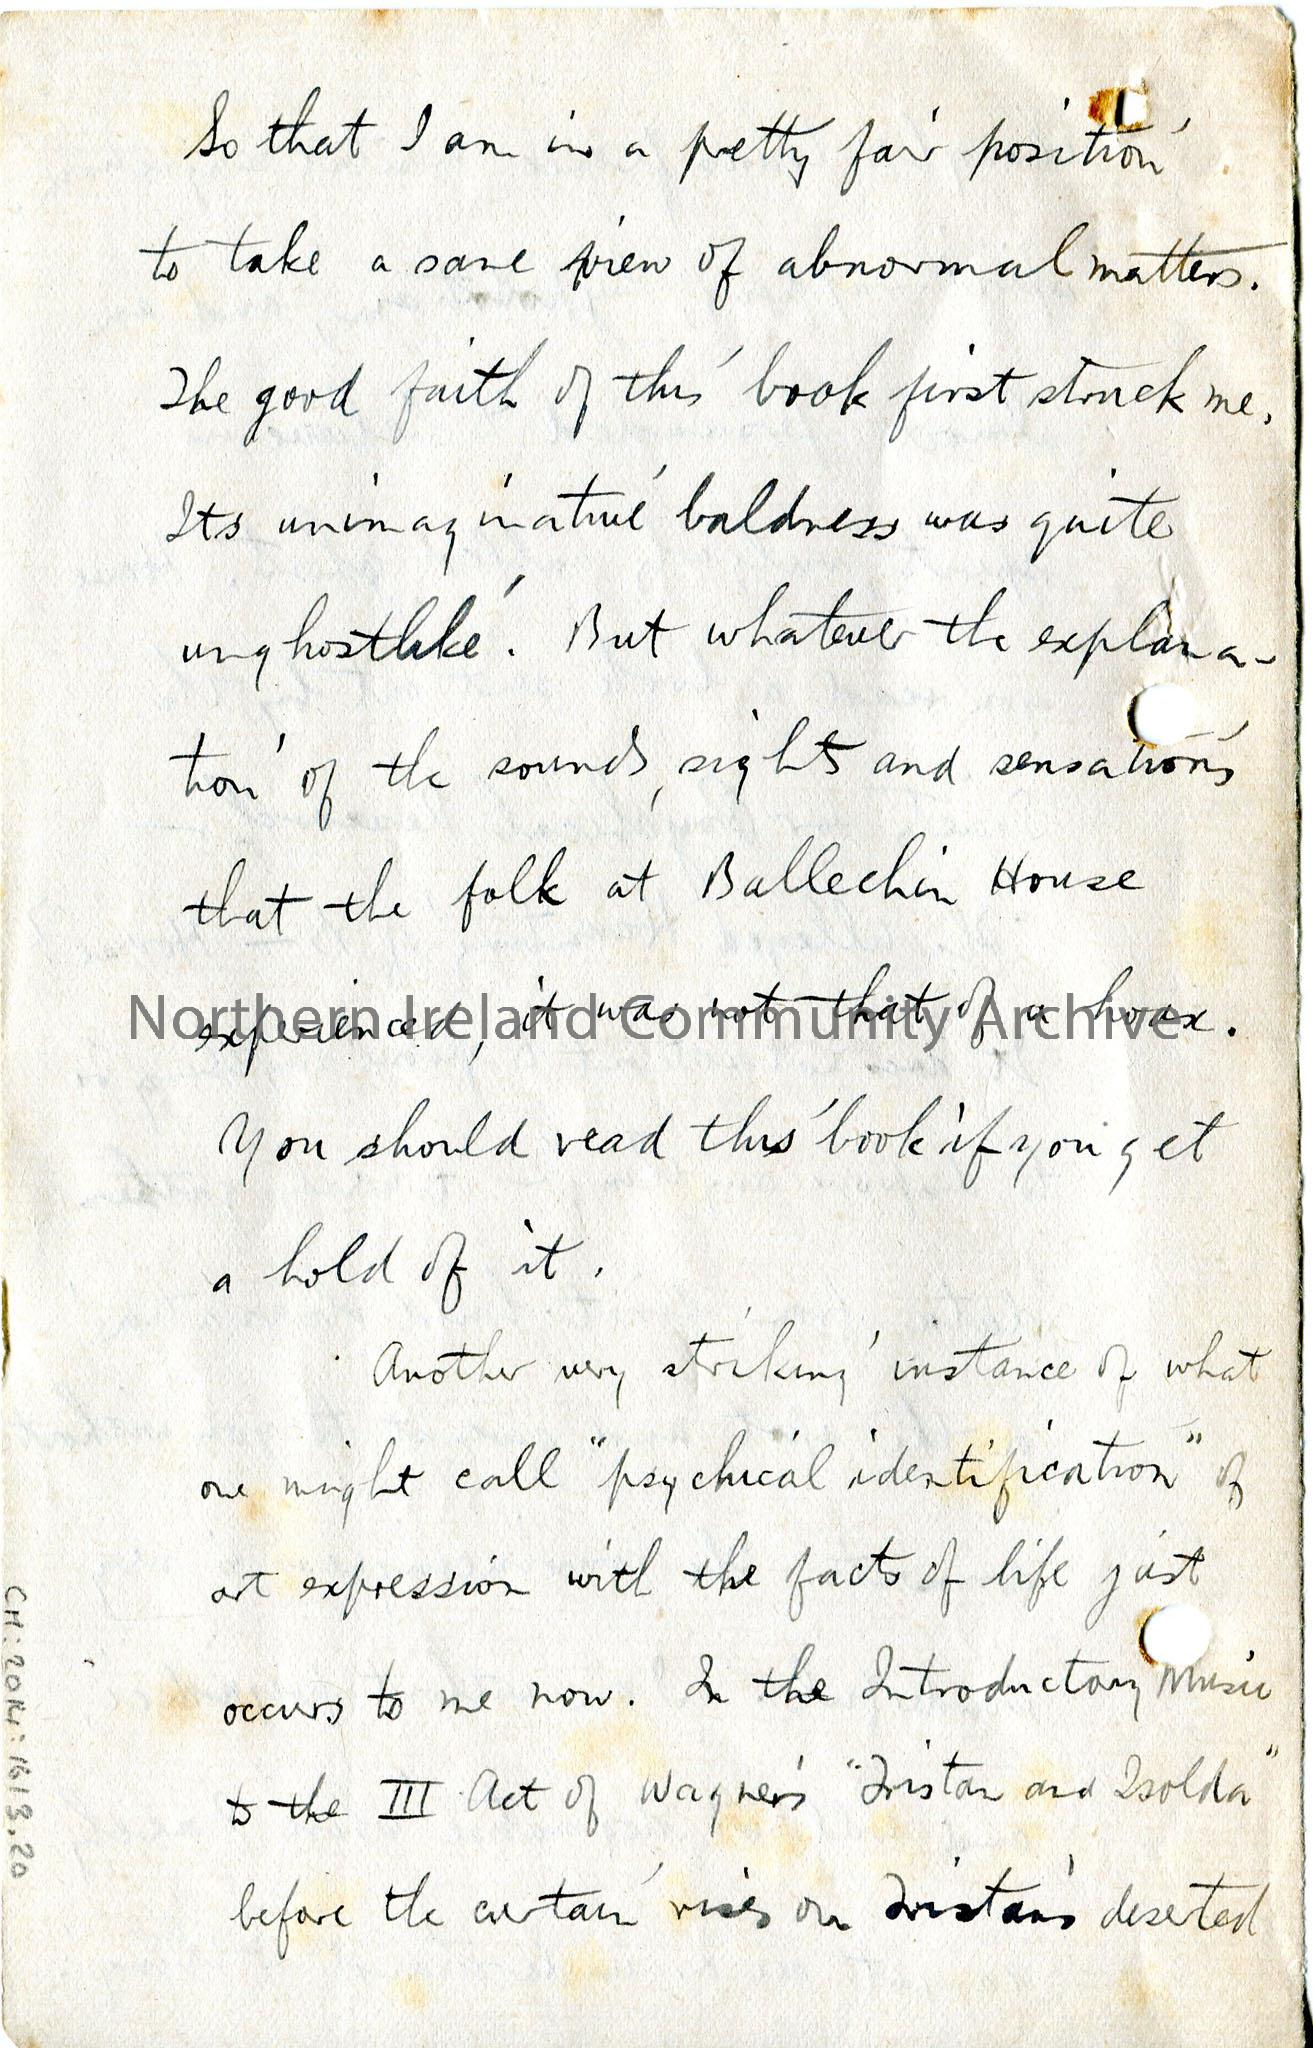 So that I am in a pretty fair position
to take a sane view of abnormal matters.
The good faith of this book first struck me.
Its unimaginative baldness was quite
unghostlike. But whatever the explana-
tion of the sounds, sights and sensations
that the folk at Ballechin House
experienced, it was not that of a hoax.
Northern Ireland Community Archive
You should read this book if you get
a hold of it.
Another very striking instance of what
one might call "psychical identification" of
art expression with the facts of life just
occurs to me now. In the Introductory Music
to the III Act of Wagner's "Tristan and Isolda"
before the curtain rises on Tristan's deserted
CH:20N:1613.20